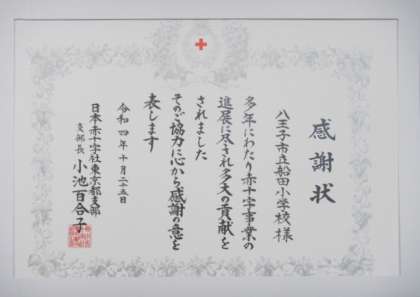 感謝状
八王子市立船田小学校 様
多年にわたり赤十字事業の
進展に尽され多大の貢献を
されました
そのご協力に心から感謝の意を
表します
令和四年十月二十五日
日本赤十字社東京都支部
支部長 小池百合子